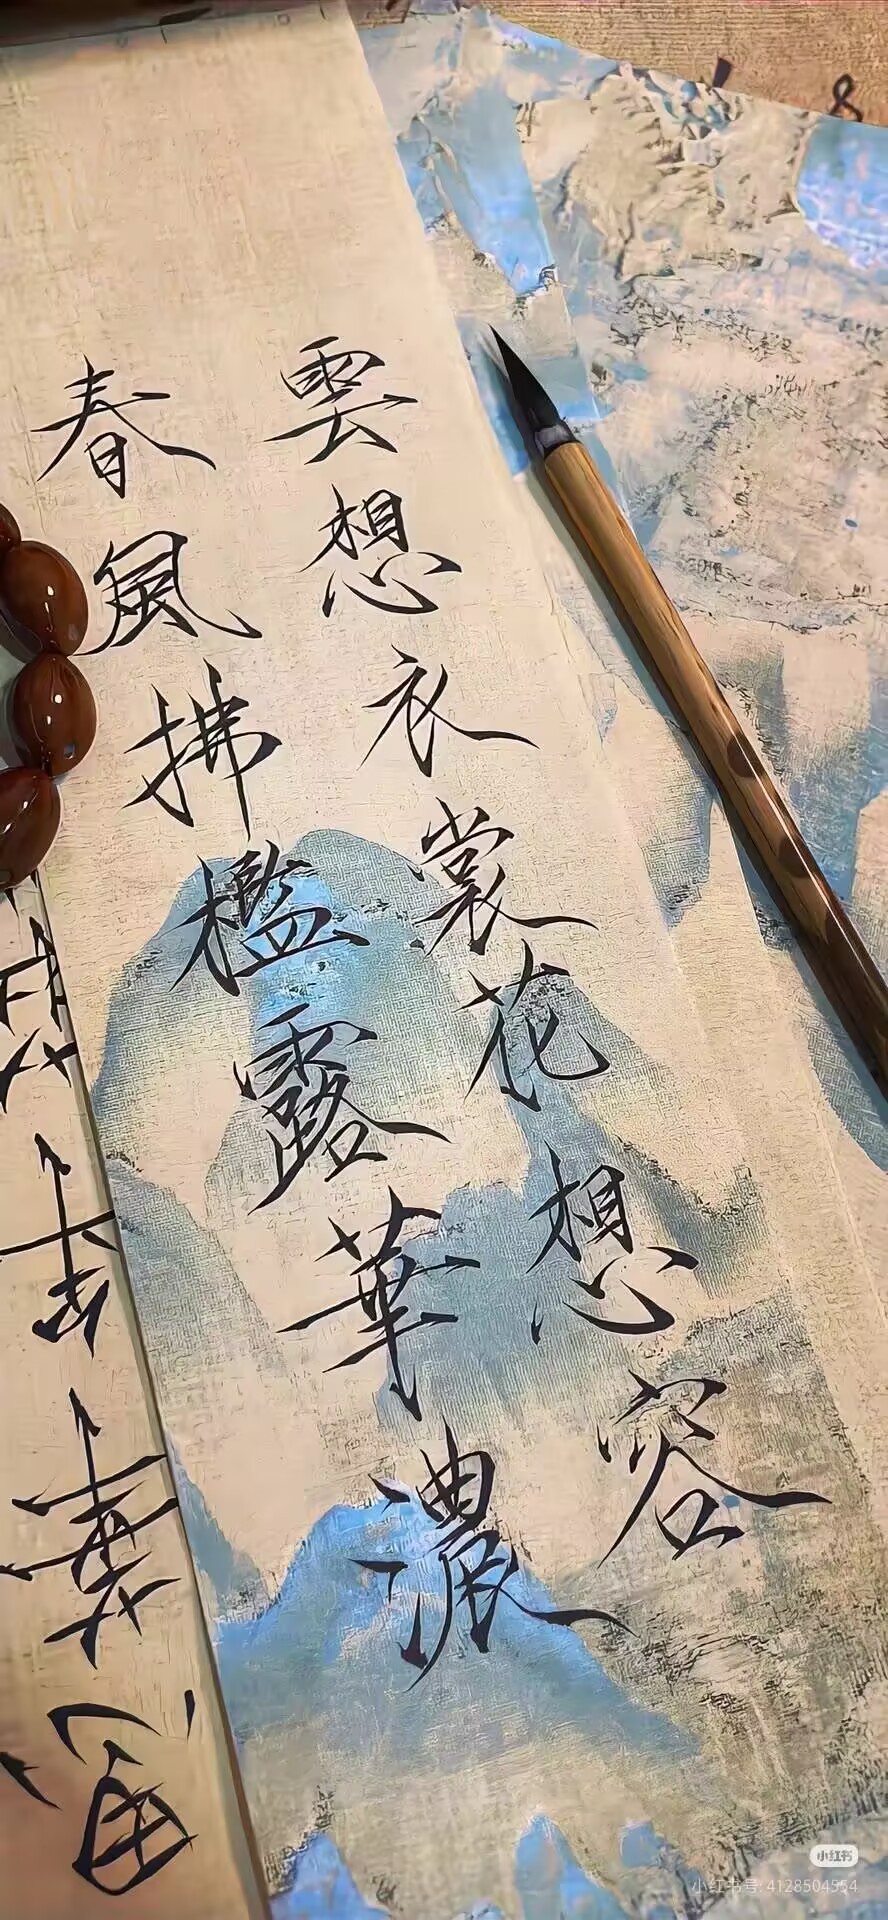 雲想衣裳花想容
春風拂檻露華濃
小红书
小红书号: 4128504554